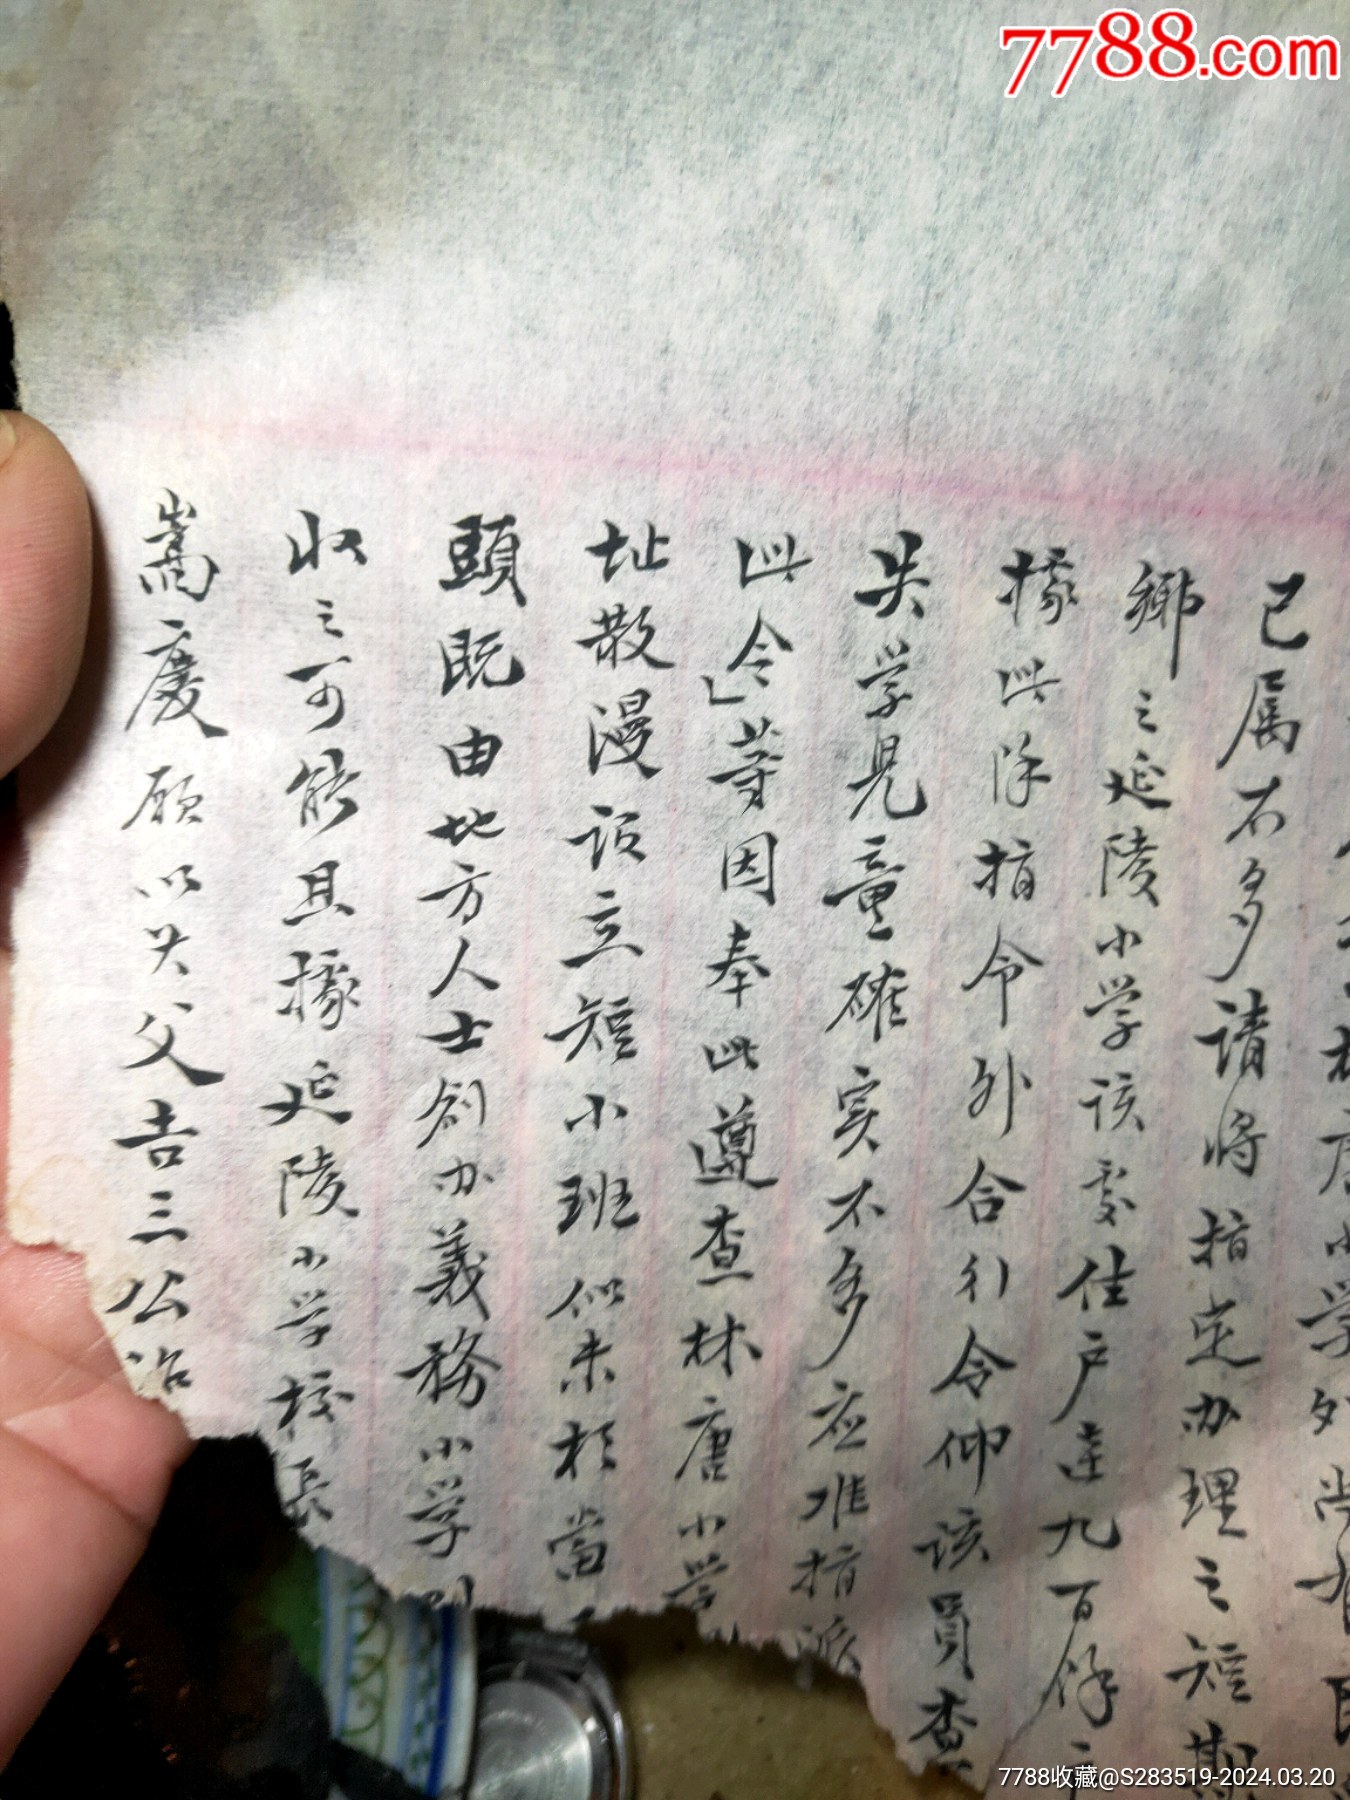 7788.com
已属不多請将指定办理之短期
鄉之延陵小学該处住户達九百餘
據此除指令外合行令仰该員查
失学児童確实不多应准指派
此令」等因奉此遵查林唐小学
址散漫設立短小班似未相當
頭既由地方人士创办義務小学
收之可能且據延陵小学校長
嵩慶願以其父吉三公治
7788收藏@S283519-2024.03.20